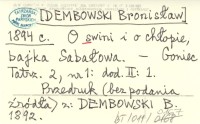 [DEMBOWSKI Bronisław]
1894 r. O świni i o chłopie,
bajka Sabałowa. — Goniec
Tatrz. 2, nr 1: dod. II: 1.
Przedruk (bez podania
źródła) z: DEMBOWSKI B.
1892.